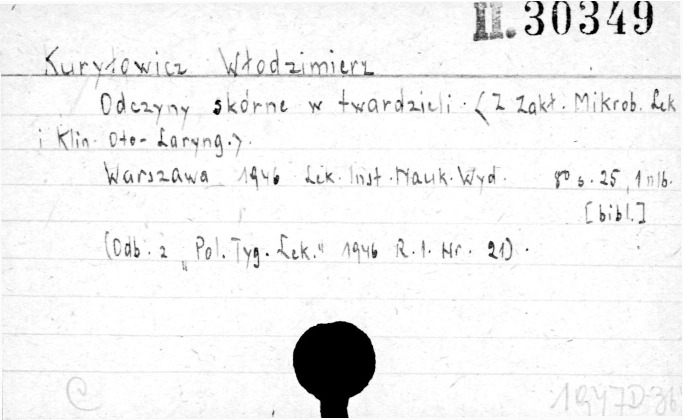 II. 30349
Kuryłowicz Włodzimierz
Odczyny skórne w twardzieli. (Z Zakł. Mikrob. Lek
i Klin. Oto-Laryng.).
Warszawa 1946 Lek. Inst. Nauk. Wyd. 8° s. 25, 1 nlb.
[bibl.]
(Odb. z „Pol. Tyg. Lek." 1946 R. 1. Nr. 21).
C 1947D 36